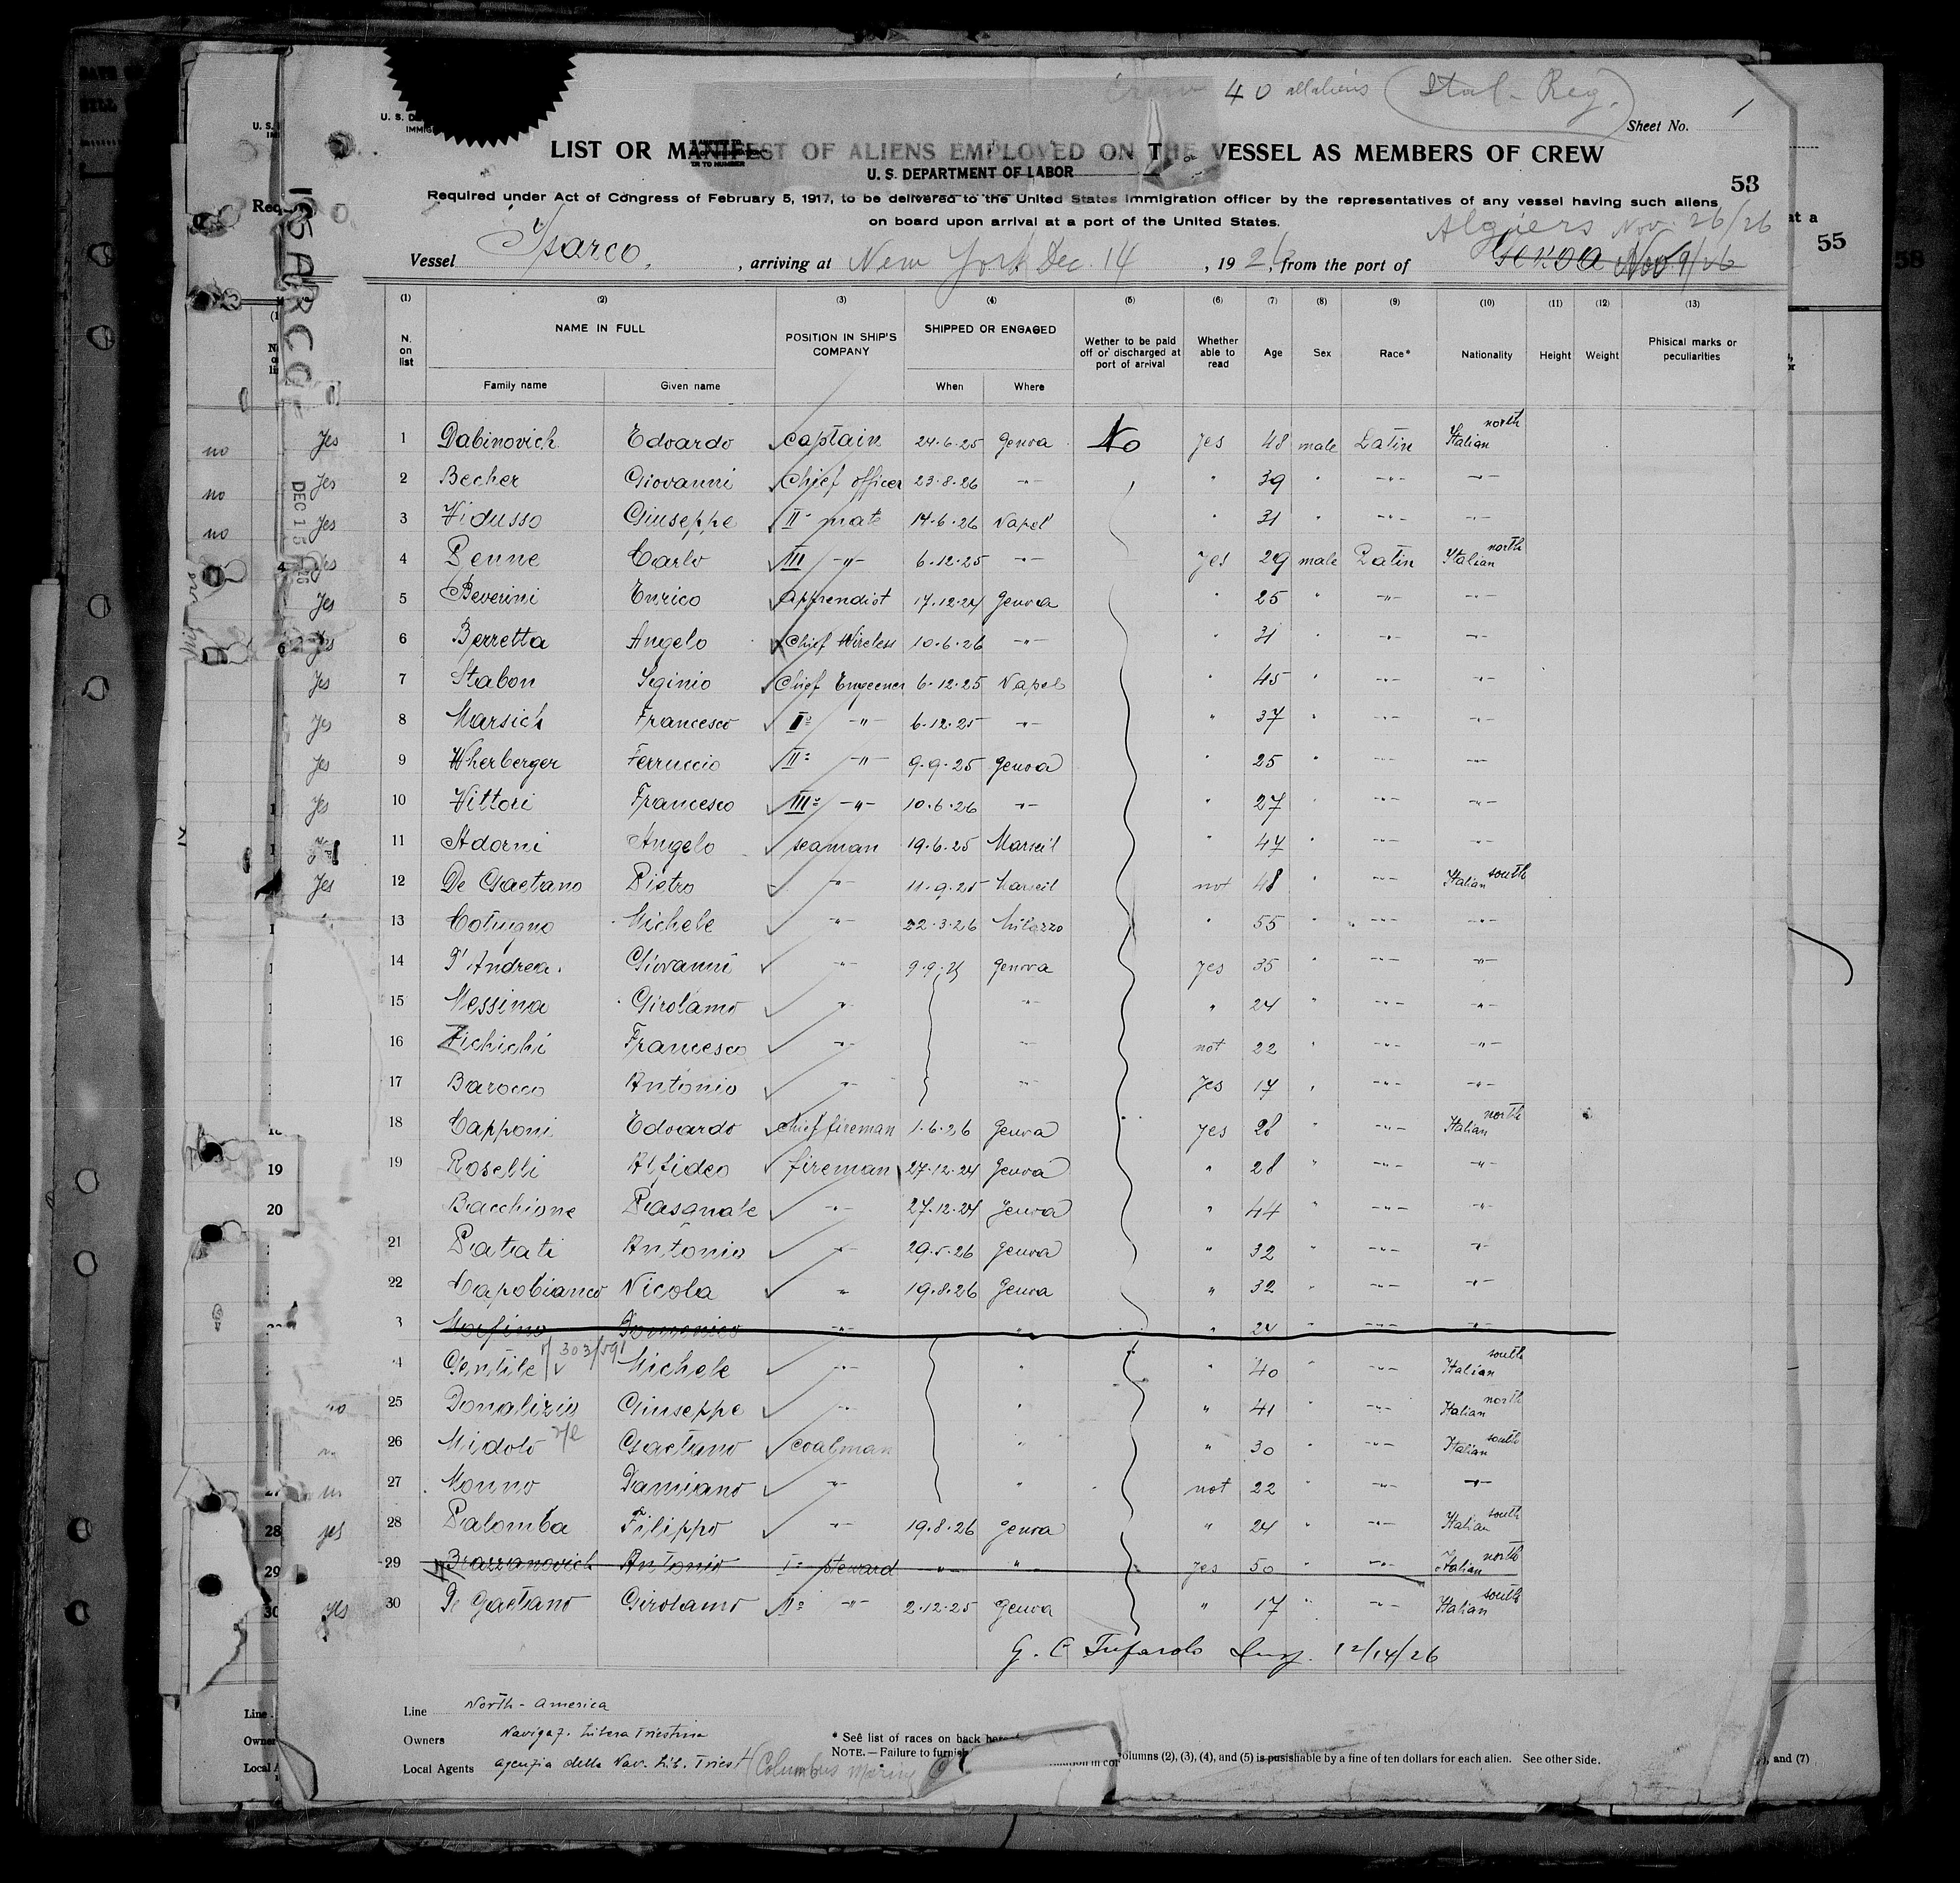 Crew 40 all aliens (Ital-Reg.)
Sheet No. 1
LIST OR MANIFEST OF ALIENS EMPLOYED ON THE VESSEL AS MEMBERS OF CREW
U. S. DEPARTMENT OF LABOR
53
Required under Act of Congress of February 5, 1917, to be delivered to the United States Immigration officer by the representatives of any vessel having such aliens
on board upon arrival at a port of the United States.
Algiers Nov. 26/26
Vessel Isarco, , arriving at New York Dec. 14 , 1926, from the port of Genoa Nov. 9/26
(1) (2) (3) (4) (5) (6) (7) (8) (9) (10) (11) (12) (13)
N. on list NAME IN FULL POSITION IN SHIP'S COMPANY SHIPPED OR ENGAGED Wether to be paid off or discharged at port of arrival Whether able to read Age Sex Race* Nationality Height Weight Phisical marks or peculiarities
Family name Given name When Where
no Yes 1 Dabinovich Edoardo captain 24.6.25 Genoa No yes 48 male Latin Italian north
no Yes 2 Becher Giovanni Chief officer 23.8.26 -"- " 39 " -"- -"-
no Yes 3 Vidusso Giuseppe II mate 14.6.26 Napel " 31 " -"- -"-
Yes 4 Penne Carlo III -"- 6.12.25 -"- yes 29 male Latin Italian north
Yes 5 Beverini Enrico Apprendist 17.12.24 Genova " 25 " -"- -"-
Yes 6 Berretta Angelo Chief Wireless 10.6.26 -"- " 31 " -"- -"-
Yes 7 Stabon Iginio Chief Engeener 6.12.25 Napel " 45 " -"- -"-
Yes 8 Marsich Francesco I° -"- 6.12.25 -"- " 37 " -"- -"-
Yes 9 Wherberger Ferruccio II° -"- 9.9.25 Genova " 25 " -"- -"-
Yes 10 Vittori Francesco III° -"- 10.6.26 -"- " 27 " -"- -"-
11 Adorni Angelo seaman 19.6.25 Marseil " 47 -"- -"-
Yes 12 De Gaetano Pietro -"- 11.9.25 Marseil not 48 " -"- Italian south
13 Cotugno Michele -"- 22.3.26 Milazzo " 55 " -"- -"-
14 D'Andrea Giovanni -"- 9.9.25 Genova yes 35 " -"- -"-
15 Messina Girolamo -"- -"- " 24 " -"- -"-
16 Zichichi Francesco -"- -"- not 22 " -"- -"-
17 Barocco Antonio -"- -"- yes 17 " -"- -"-
18 Capponi Edoardo chief fireman 1.6.26 Genova yes 28 " -"- Italian north
19 Roselli Alfideo fireman 27.12.24 Genova " 28 " -"- -"-
Bacchione Pasquale -"- 27.12.24 Genova " 44 " -"- -"-
21 Patati Antonio -"- 29.5.26 Genova " 32 " -"- -"-
22 Capobianco Nicola -"- 19.8.26 Genova " 32 " -"- -"-
3 Morfino Domenico -"- " " 24 " -"- -"-
4 Gentile Michele -"- " " 40 " -"- Italian south
no 25 Donalizio Giuseppe -"- " " 41 " -"- Italian north
26 Midolo Gaetano coalman " " 30 " -"- Italian south
27 Monno Damiano -"- " not 22 " -"- -"-
yes 28 Palomba Filippo -"- 19.8.26 Genova " 24 " -"- Italian south
29 Brazzanovich Antonio I° steward -"- " Yes 50 " -"- Italian north
yes 30 De Gaetano Girolamo II° -"- 2.12.25 Genova " 17 " -"- Italian south
12/14/26
Line North-America
Owners Navigaz. Libera Triestina
Local Agents agenzia della Nav. Lib. Triest
* See list of races on back
NOTE.—Failure to furnish columns (2), (3), (4), and (5) is pusishable by a fine of ten dollars for each alien. See other side.
ISARCO
DEC 15
55
58
19
20
28
29
30
, and (7)